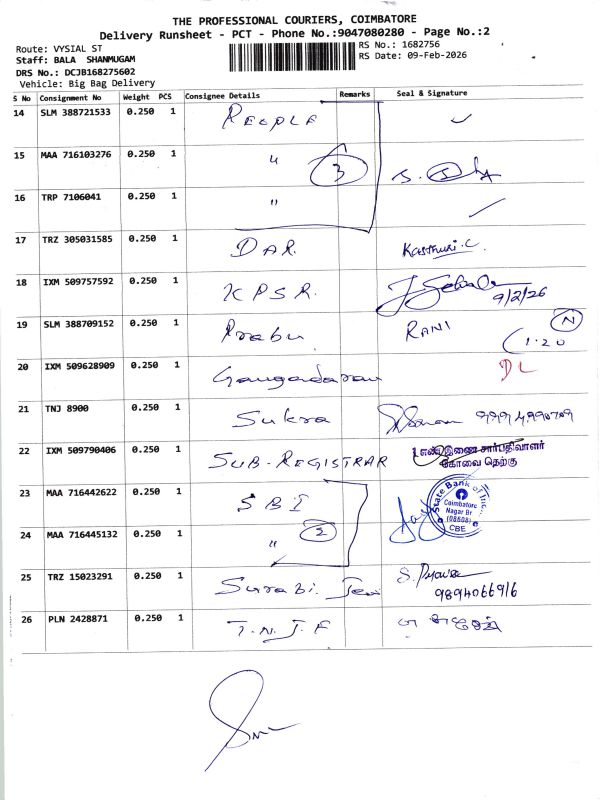 THE PROFESSIONAL COURIERS, COIMBATORE
Delivery Runsheet - PCT - Phone No.:9047080280 - Page No.:2
Route: VYSIAL ST
RS No.: 1682756
Staff: BALA SHANMUGAM
RS Date: 09-Feb-2026
DRS No.: DCJB168275602
Vehicle: Big Bag Delivery
S No Consignment No Weight PCS Consignee Details Remarks Seal & Signature
14 SLM 388721533 0.250 1 PEOPLE
15 MAA 716103276 0.250 1 " 3
16 TRP 7106041 0.250 1 "
17 TRZ 305031585 0.250 1 DAR. Kasthuri.C
18 IXM 509757592 0.250 1 KPSR. 9/2/26
19 SLM 388709152 0.250 1 Prabu RANI N
1.20
20 IXM 509628909 0.250 1 Gangadaran DL
21 TNJ 8900 0.250 1 Sukra
22 IXM 509790406 0.250 1 SUB-REGISTRAR 1.எண் இணை சார்பதிவாளர்
கோவை தெற்கு
23 MAA 716442622 0.250 1 SBI
State Bank of Inc.
Coimbatore
Nagar Br
(08608)
CBE
24 MAA 716445132 0.250 1 " 2
25 TRZ 15023291 0.250 1 Surabi. S.
9894066916
26 PLN 2428871 0.250 1 T.N.J.F